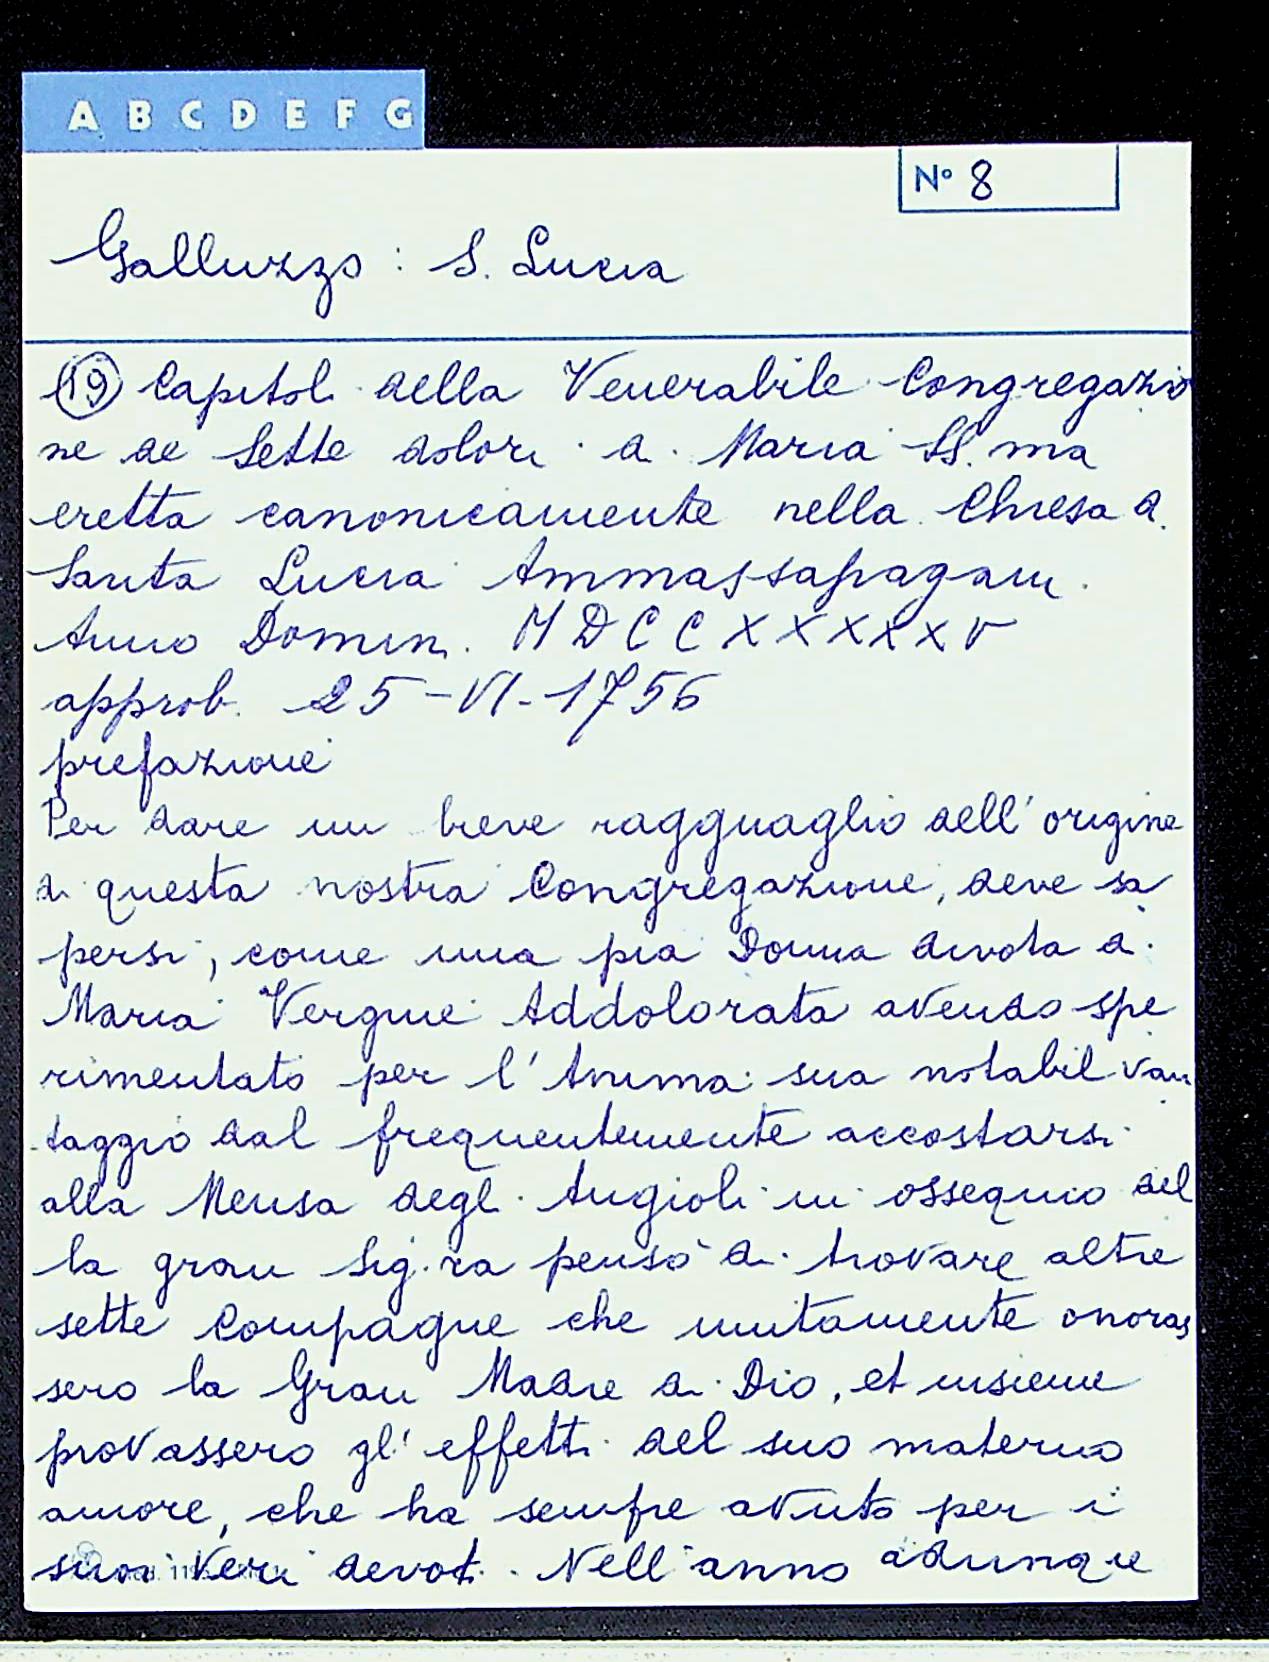 A B C D E F G
N° 8
Galluzzo : S. Lucia
(19) Capitoli della Venerabile Congregazio
ne de Sette dolori di Maria SS.ma
eretta canonicamente nella Chiesa di
Santa Lucia Ammassapagani.
Anno Domini. MDCCXXXXXV
approb. 25-VI-1756
prefazione
Per dare un breve ragguaglio dell'origine
di questa nostra Congregazione, deve sa
persi, come una pia Donna divota di
Maria Vergine Addolorata avendo spe
rimentato per l'Anima sua notabil van
taggio dal frequentemente accostarsi
alla Mensa degli Angioli in ossequio del
la gran Sig.ra pensò di trovare altre
sette Compagne che unitamente onoras
sero la Gran Madre di Dio, et insieme
provassero gl'effetti del suo materno
amore, che ha sempre avuto per i
suoi veri devoti. Nell'anno adunque